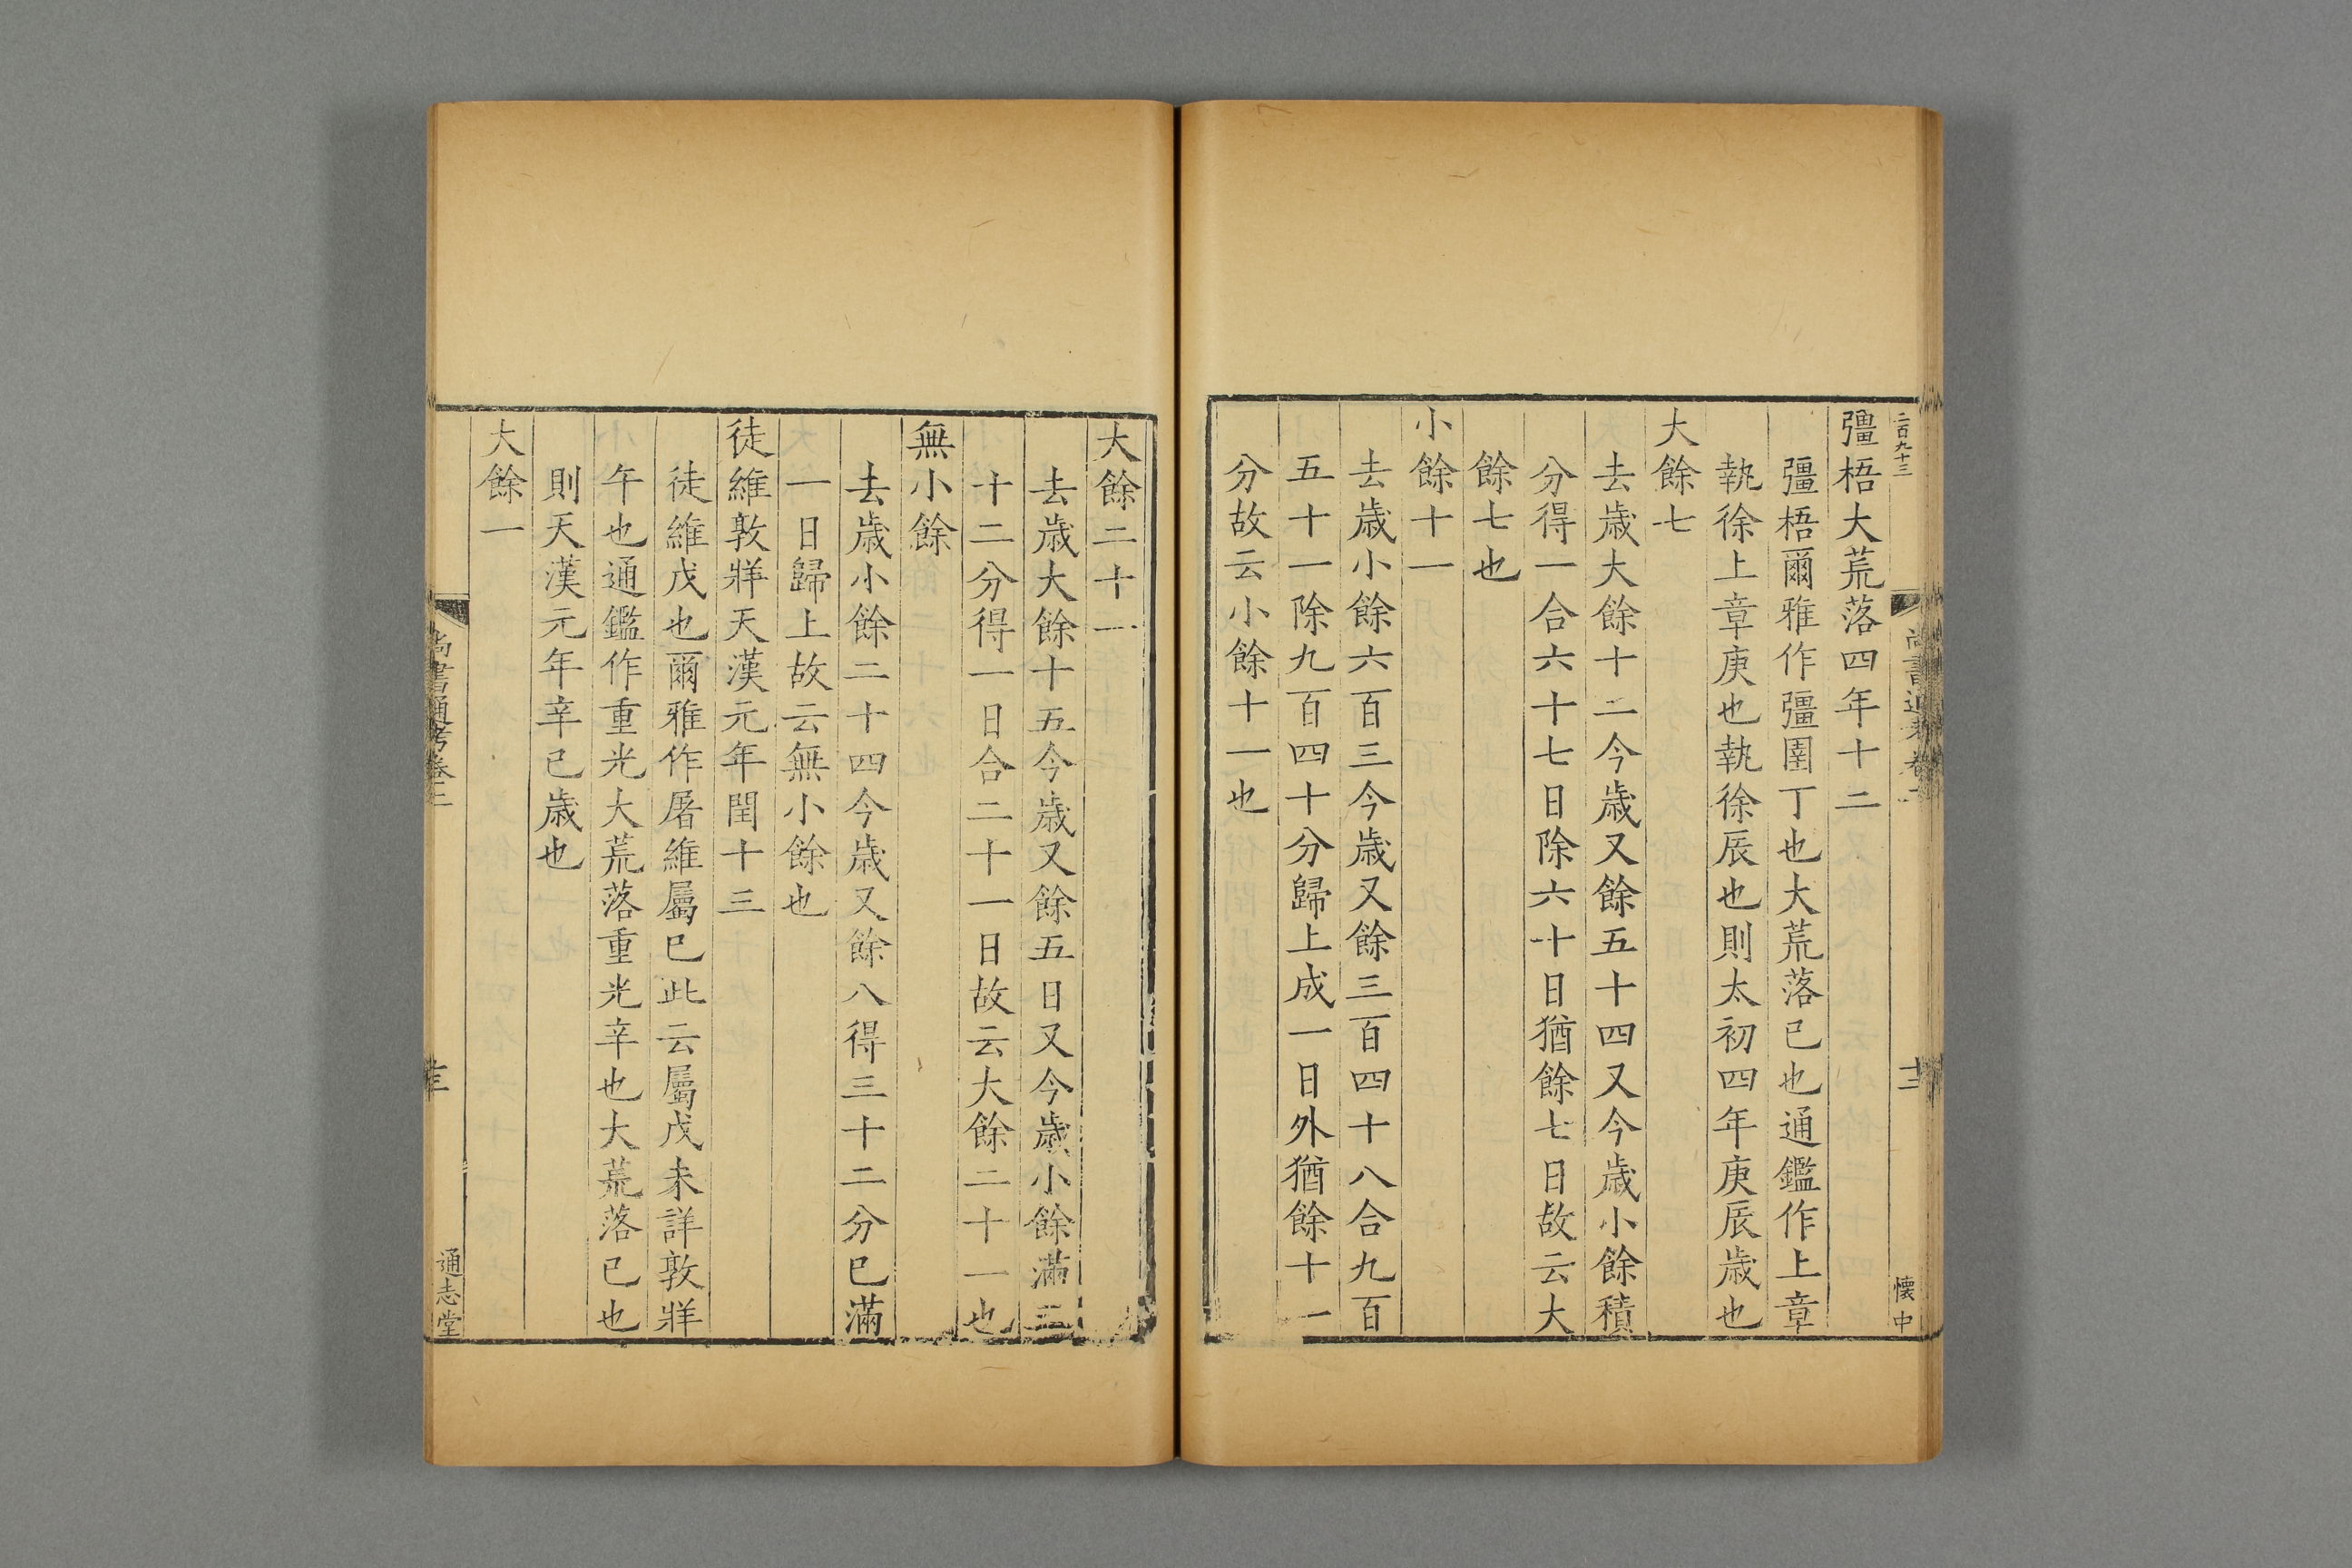 二百九十三
懐中
彊梧大荒落四年十二
彊梧爾雅作彊圉丁也大荒落巳也通鑑作上章
執徐上章庚也執徐辰也則太初四年庚辰歲也
大餘七
去歲大餘十二今歲又餘五十四又今歲小餘積
分得一合六十七日除六十日猶餘七日故云大
餘七也
小餘十一
去歲小餘六百三今歲又餘三百四十八合九百
五十一除九百四十分歸上成一日外猶餘十一
分故云小餘十一也
大餘二十一
去歲大餘十五今歲又餘五日又今歲小餘滿三
十二分得一日合二十一日故云大餘二十一也
無小餘
去歲小餘二十四今歲又餘八得三十二分已滿
一日歸上故云無小餘也
徒維敦牂天漢元年閏十三
徒維戊也爾雅作屠維屬巳此云屬戊未詳敦牂
午也通鑑作重光大荒落重光辛也大荒落巳也
則天漢元年辛巳歲也
大餘一
尚書通考卷三
通志堂